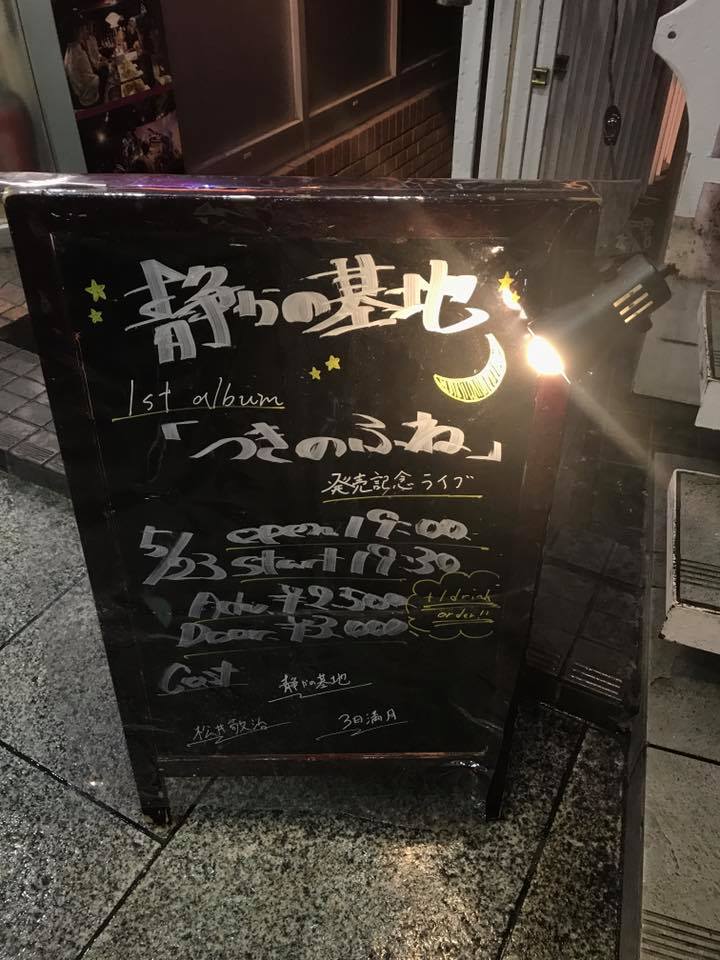 静かの基地
1st album
「つきのふね」
発売記念ライブ
5/23
open 19:00
start 19:30
Adv ¥2,500
Door ¥3,000
+1drink
order!!
Cast
静かの基地
松井敬治
3日満月